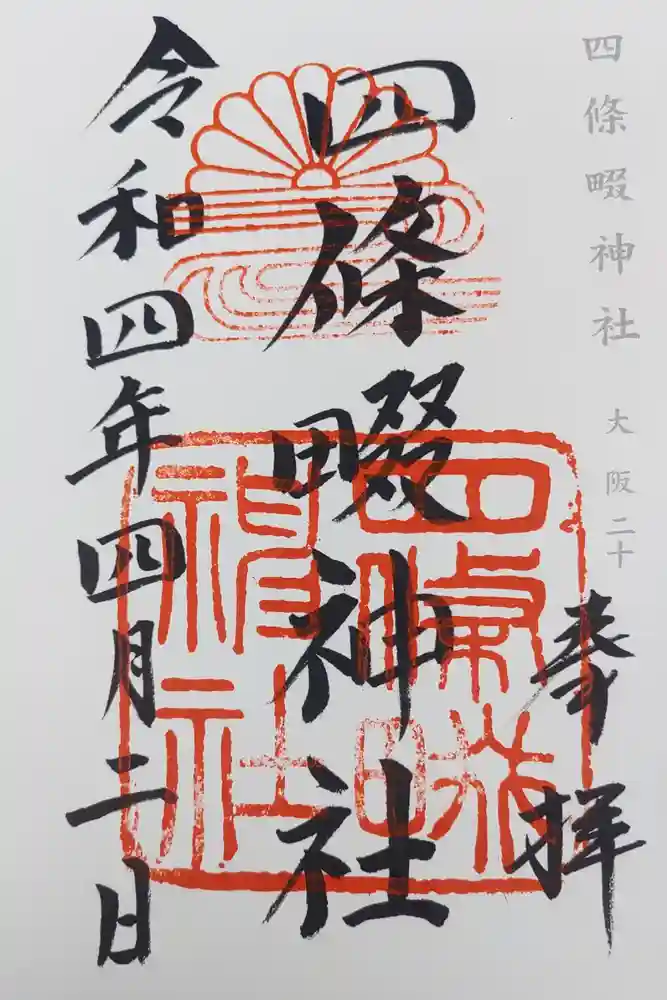 四條畷神社 大阪二十
奉拝
四條畷神社
四條畷神社
令和四年四月二日